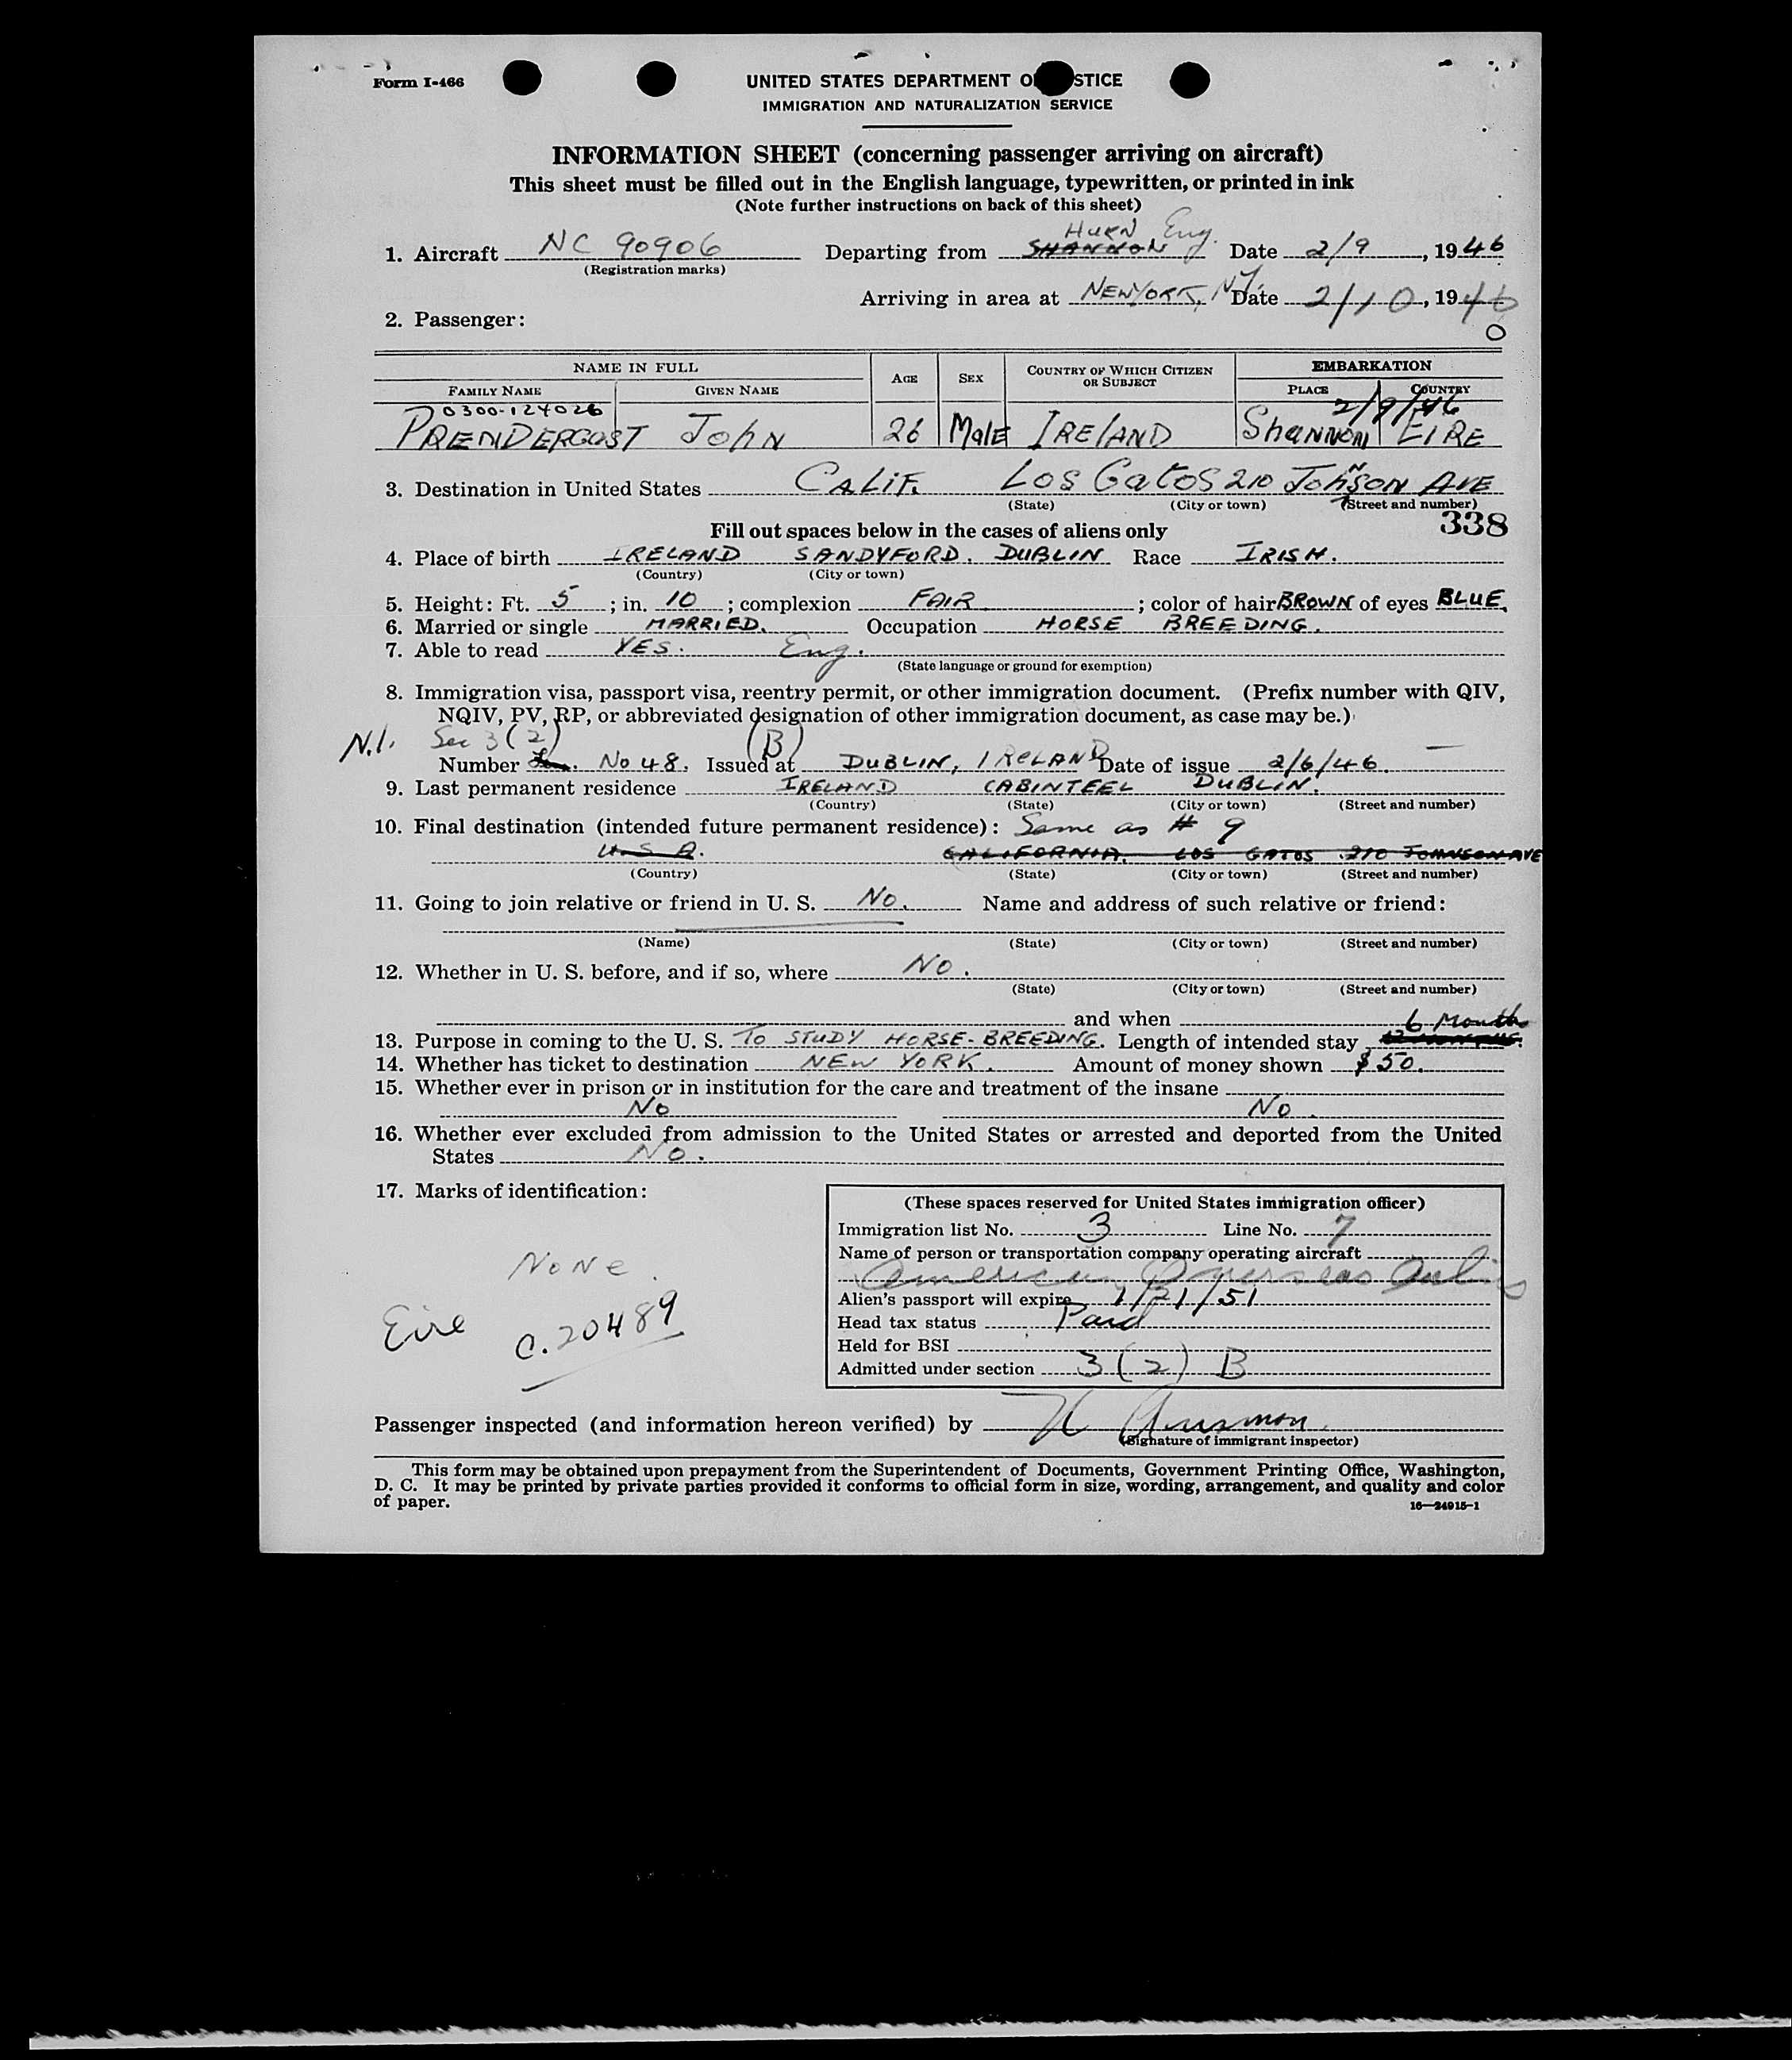 Form I-466
UNITED STATES DEPARTMENT O STICE
IMMIGRATION AND NATURALIZATION SERVICE
INFORMATION SHEET (concerning passenger arriving on aircraft)
This sheet must be filled out in the English language, typewritten, or printed in ink
(Note further instructions on back of this sheet)
HURN Eng.
1. Aircraft NC 90906 Departing from SHANNON Date 2/9, 1946
(Registration marks)
Arriving in area at NEWYORK, NY. Date 2/10, 1946
2. Passenger:
0
NAME IN FULL AGE SEX COUNTRY OF WHICH CITIZEN OR SUBJECT EMBARKATION
FAMILY NAME GIVEN NAME PLACE COUNTRY
0300-124026 2/9/46
PRENDERGAST JOHN 26 MALE IRELAND SHANNON EIRE
3. Destination in United States CALIF. LOS GATOS 210 JOHNSON AVE
(State) (City or town) (Street and number)
Fill out spaces below in the cases of aliens only 338
4. Place of birth IRELAND SANDYFORD. DUBLIN Race IRISH.
(Country) (City or town)
5. Height: Ft. 5; in. 10; complexion FAIR; color of hair BROWN of eyes BLUE.
6. Married or single MARRIED. Occupation HORSE BREEDING.
7. Able to read YES. Eng.
(State language or ground for exemption)
8. Immigration visa, passport visa, reentry permit, or other immigration document. (Prefix number with QIV,
NQIV, PV, RP, or abbreviated designation of other immigration document, as case may be.)
N.I. Sec 3(2) (B)
Number No 48. Issued at DUBLIN, IRELAND Date of issue 2/6/46.
9. Last permanent residence IRELAND CABINTEEL DUBLIN.
(Country) (State) (City or town) (Street and number)
10. Final destination (intended future permanent residence): Same as # 9
U.S.A. CALIFORNIA. LOS GATOS .210 JOHNSON AVE
(Country) (State) (City or town) (Street and number)
11. Going to join relative or friend in U. S. No. Name and address of such relative or friend:
(Name) (State) (City or town) (Street and number)
12. Whether in U. S. before, and if so, where No.
(State) (City or town) (Street and number)
and when
6 Months
13. Purpose in coming to the U. S. To STUDY HORSE-BREEDING. Length of intended stay
14. Whether has ticket to destination NEW YORK. Amount of money shown $50.
15. Whether ever in prison or in institution for the care and treatment of the insane
No No.
16. Whether ever excluded from admission to the United States or arrested and deported from the United
States No.
17. Marks of identification:
NONE.
Eire C.20489
(These spaces reserved for United States immigration officer)
Immigration list No. 3 Line No. 7
Name of person or transportation company operating aircraft
American Overseas Airlines
Alien's passport will expire 1/21/51
Head tax status Paid
Held for BSI
Admitted under section 3(2) B
Passenger inspected (and information hereon verified) by
(Signature of immigrant inspector)
This form may be obtained upon prepayment from the Superintendent of Documents, Government Printing Office, Washington,
D. C. It may be printed by private parties provided it conforms to official form in size, wording, arrangement, and quality and color
of paper.
16—24915-1